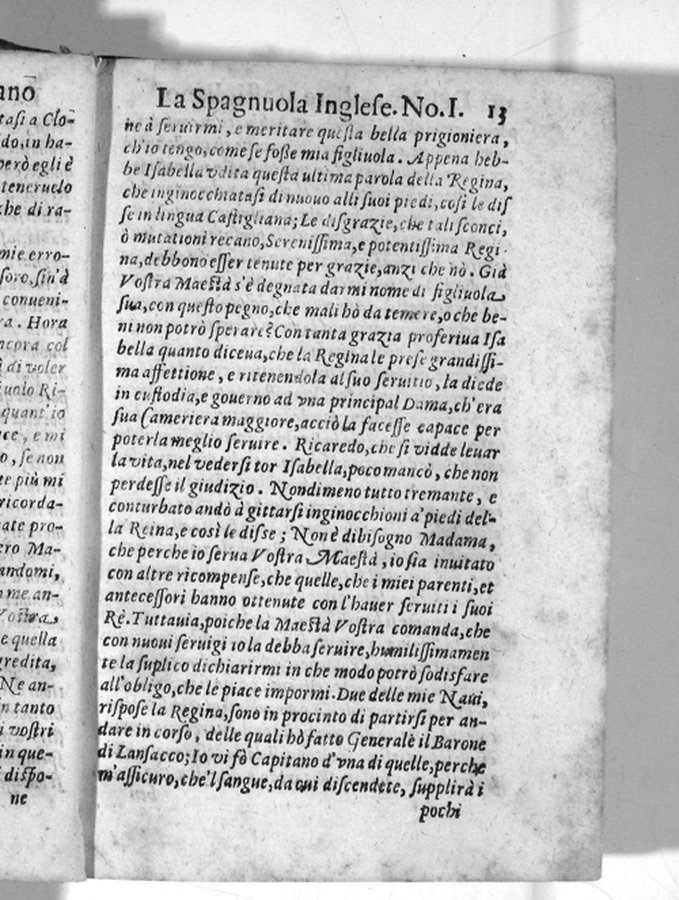 ano
tasi a Clo-
do, in ha-
però egli è
teneruelo
che di ra-
mie erro-
soro, sin'à
conueni-
ra. Hora
ncora col
di voler
iuolo Ri-
quant'io
ce, e mi
o, se non
te più mi
ricorda-
ate pro-
ero Ma-
andomi,
me an-
Vostra
e quella
gredita,
Ne an-
n tanto
i vostri
in que-
dispo-
ne
La Spagnuola Inglese. No. I. 13
ne à seruirmi, e meritare questa bella prigioniera,
ch'io tengo, come se fosse mia figliuola. Appena heb-
be Isabella vdita questa ultima parola della Regina,
che inginocchiatasi di nuouo alli suoi piedi, così le dis
se in lingua Castigliana; Le disgrazie, che tali sconci,
ò mutationi recano, Serenissima, e potentissima Regi-
na, debbono esser tenute per grazie, anzi che nò. Già
Vostra Maestà s'è degnata darmi nome di figliuola
sua, con questo pegno, che mali hò da temere, o che be-
ni non potrò sperare? Con tanta grazia proferiua Isa
bella quanto diceua, che la Regina le prese grandissi-
ma affettione, e ritenendola al suo seruitio, la diede
in custodia, e gouerno ad vna principal Dama, ch'era
sua Cameriera maggiore, acciò la facesse capace per
poterla meglio seruire. Ricaredo, che si vidde leuar
la vita, nel vedersi tor Isabella, poco mancò, che non
perdesse il giudizio. Nondimeno tutto tremante, e
conturbato andò à gittarsi inginocchioni a' piedi del-
la Reina, e così le disse; Non è dibisogno Madama,
che perche io serua Vostra Maestà, io sia inuitato
con altre ricompense, che quelle, che i miei parenti, et
antecessori hanno ottenute con l'hauer seruiti i suoi
Rè. Tuttauia, poiche la Maestà Vostra comanda, che
con nuoui seruigi io la debba seruire, humilissimamen
te la suplico dichiarirmi in che modo potrò sodisfare
all'obligo, che le piace impormi. Due delle mie Naui,
rispose la Regina, sono in procinto di partirsi per an-
dare in corso, delle quali hò fatto Generalè il Barone
di Lansacco; Io vi fò Capitano d'vna di quelle, perche
m'assicuro, che'l sangue, da cui discendete, supplirà i
pochi